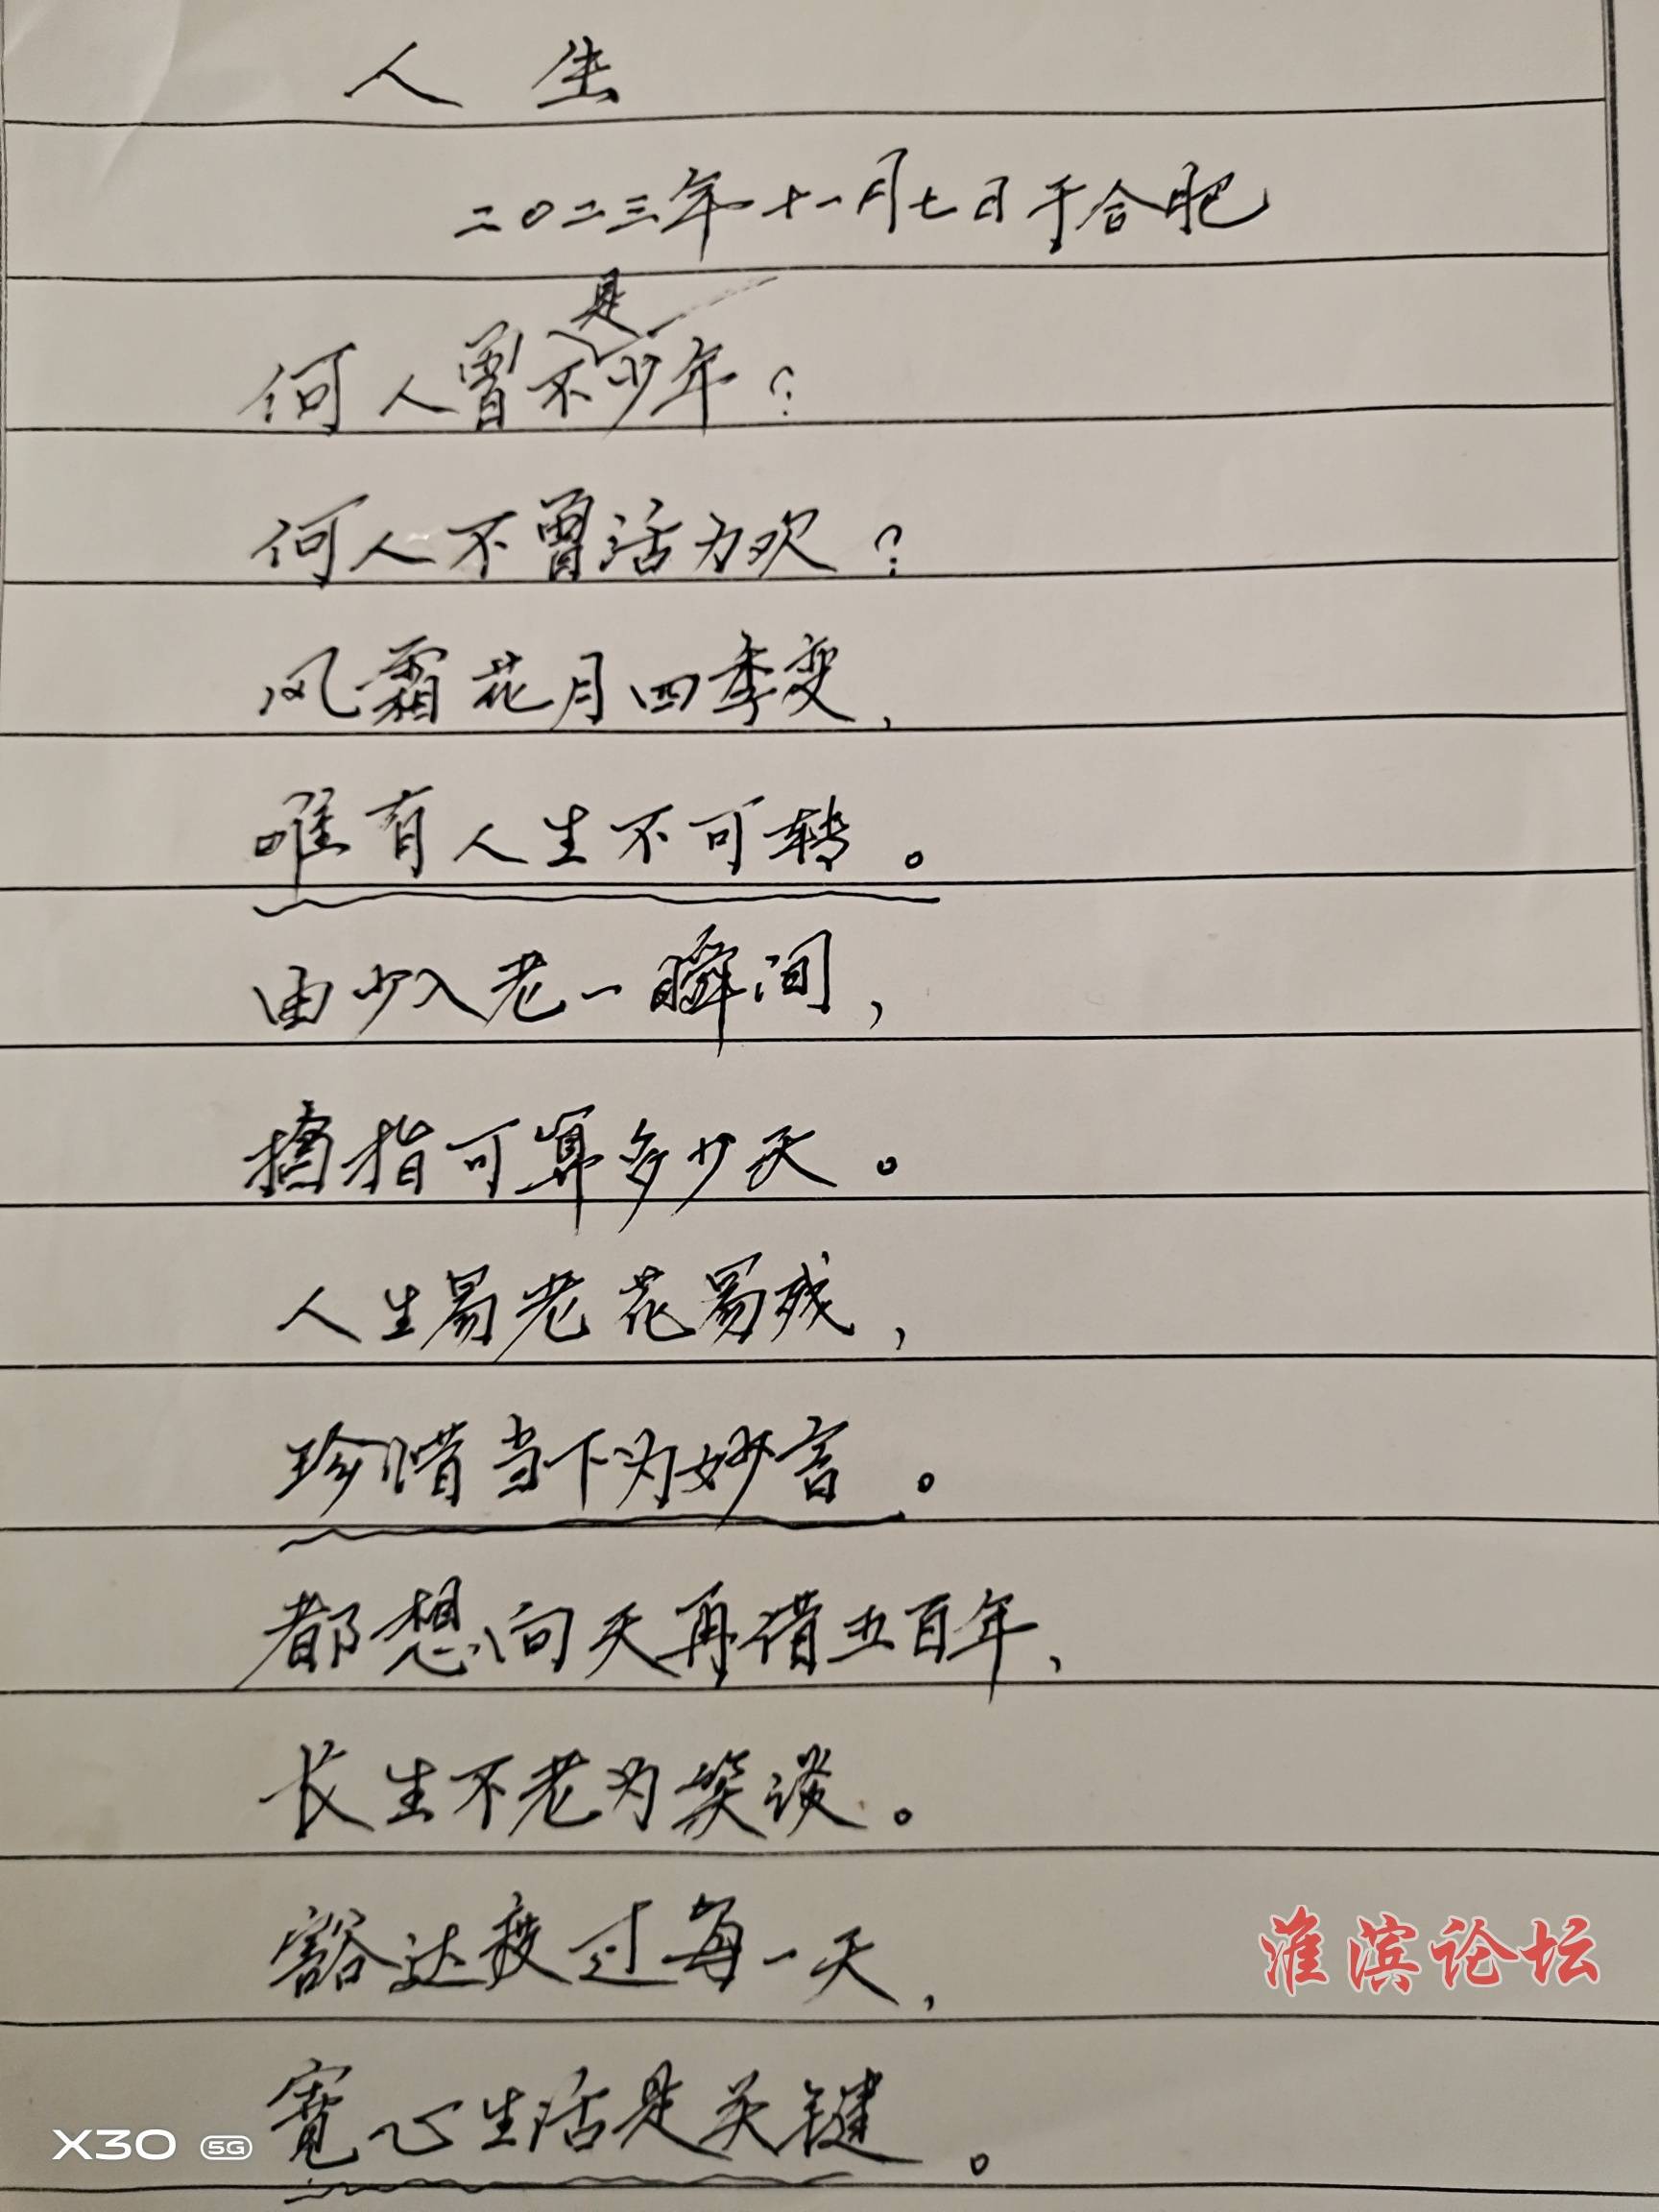 人生
二〇二三年十一月七日于合肥
何人曾不是少年？
何人不曾活力欢？
风霜花月四季变，
唯有人生不可转。
由少入老一瞬间，
指可算多少天。
人生易老花易残，
珍惜当下为妙言。
都想向天再借五百年，
长生不老为笑谈。
豁达度过每一天，
宽心生活是关键。
淮滨论坛
X30 5G